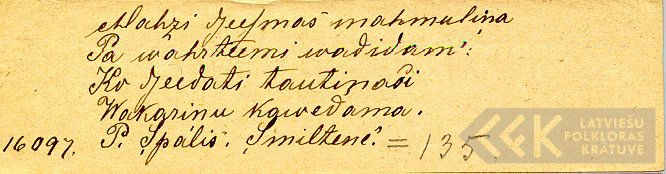 Mahzi dseesmas mahmulina
Pa wàhrteem wadidam':
Ko dseedati tautinàs
Wakarinu kawedama.
16097. P. Spàlis. Smiltenê. = 135
LATVIEŠU
FOLKLORAS
KRĀTUVE